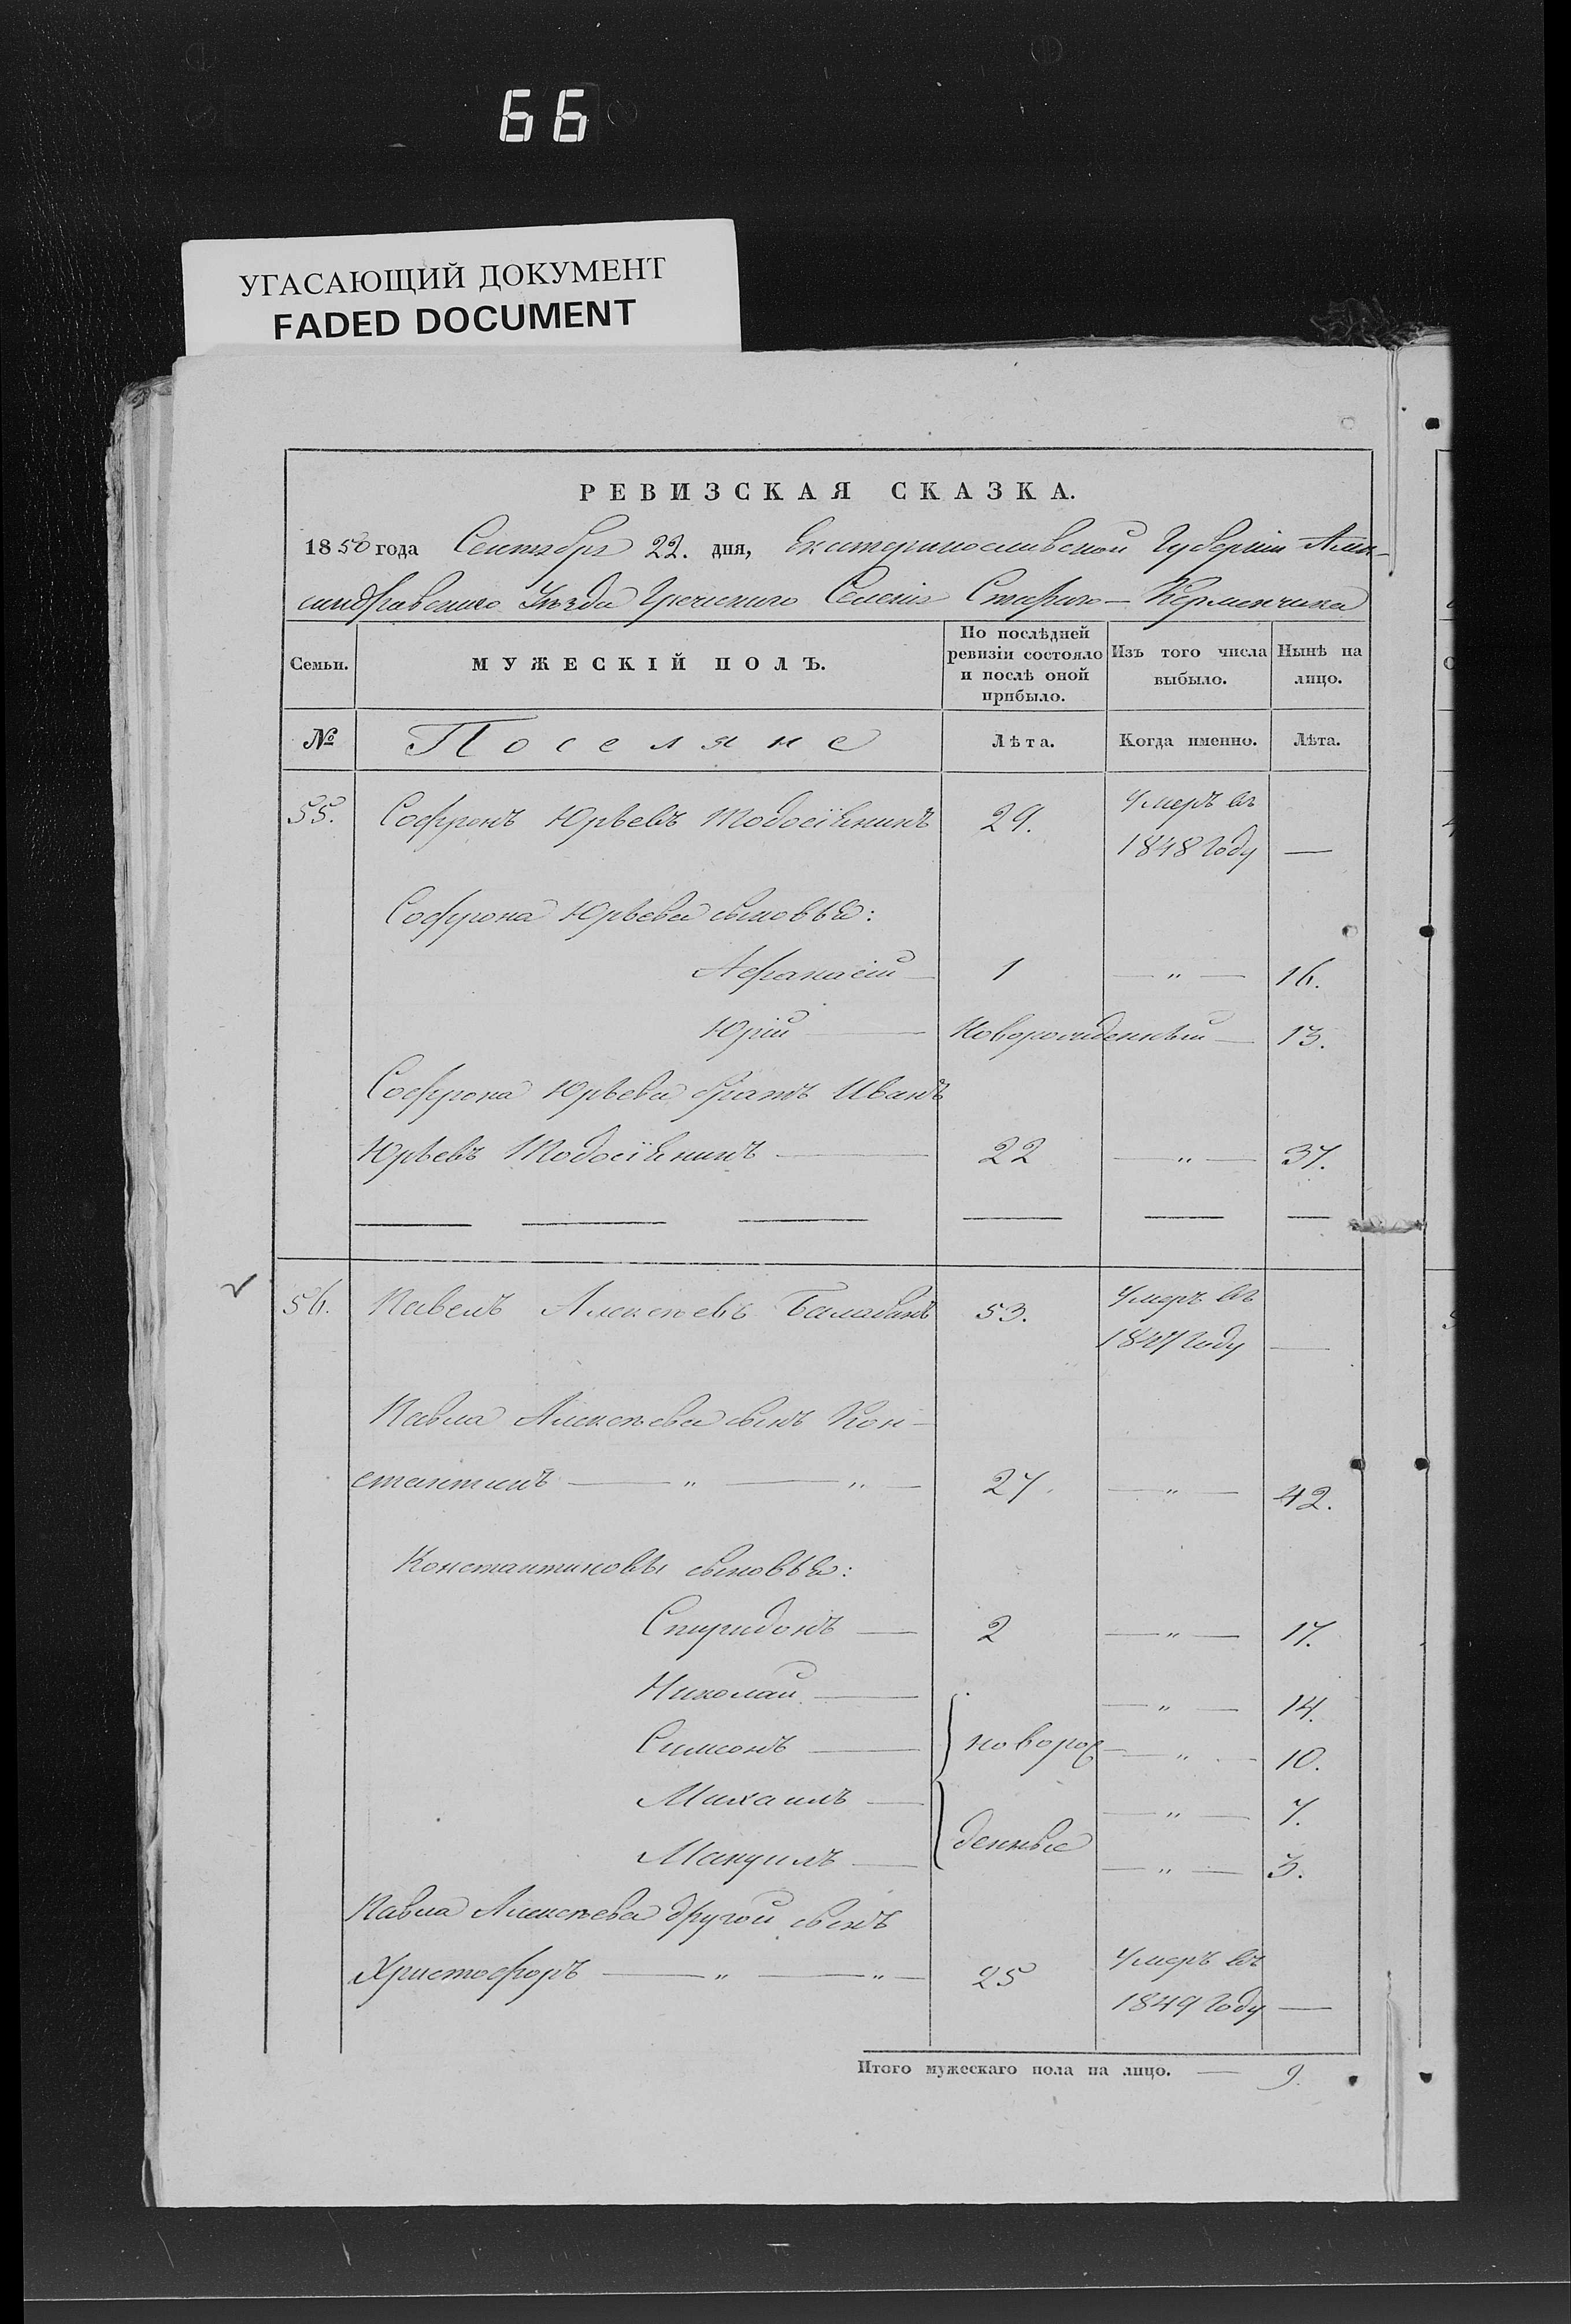 66
УГАСАЮЩИЙ ДОКУМЕНТ
FADED DOCUMENT
РЕВИЗСКАЯ СКАЗКА.
1850 года Сентября 22. дня, Екатеринославской Губерніи Алек-
сандровскаго Уѣзда Греческаго Селенія Стараго-Керменчика
Семьи. МУЖЕСКІЙ ПОЛЪ. По послѣдней ревизіи состояло и послѣ оной прибыло. Изъ того числа выбыло. Нынѣ на лицо.
№ Поселяне Лѣта. Когда именно. Лѣта.
55. Софронъ Юрьевъ 29. Умеръ въ
1848 Году —
Софрона Юрьева сыновья:
Афанасій — 1 — „ — 16.
Юрій — Новорожденный — 13.
Софрона Юрьева братъ Иванъ
Юрьевъ — 22 — „ — 37.
56. Павелъ Алексѣевъ Балабанъ 53. Умеръ въ
1847 Году —
Павла Алексѣева сынъ Кон-
стантинъ — „ — „ — 27. — „ — 42.
Константиновы сыновья:
Спиридонъ — 2 — „ — 17.
Николай — — „ — 14.
Симеонъ — новорож- — „ — 10.
Михаилъ — — „ — 7.
Мануилъ — денные — „ — 3.
Павла Алексѣева другой сынъ
Христофоръ — „ — „ — 25 Умеръ въ
1849 Году —
Итого мужескаго пола на лицо. — 9.